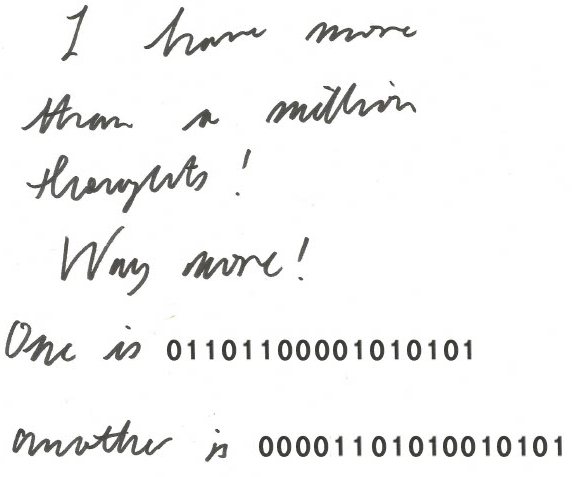 I have more
than a million
thoughts!
Way more!
One is 01101100001010101
another is 00001101010010101